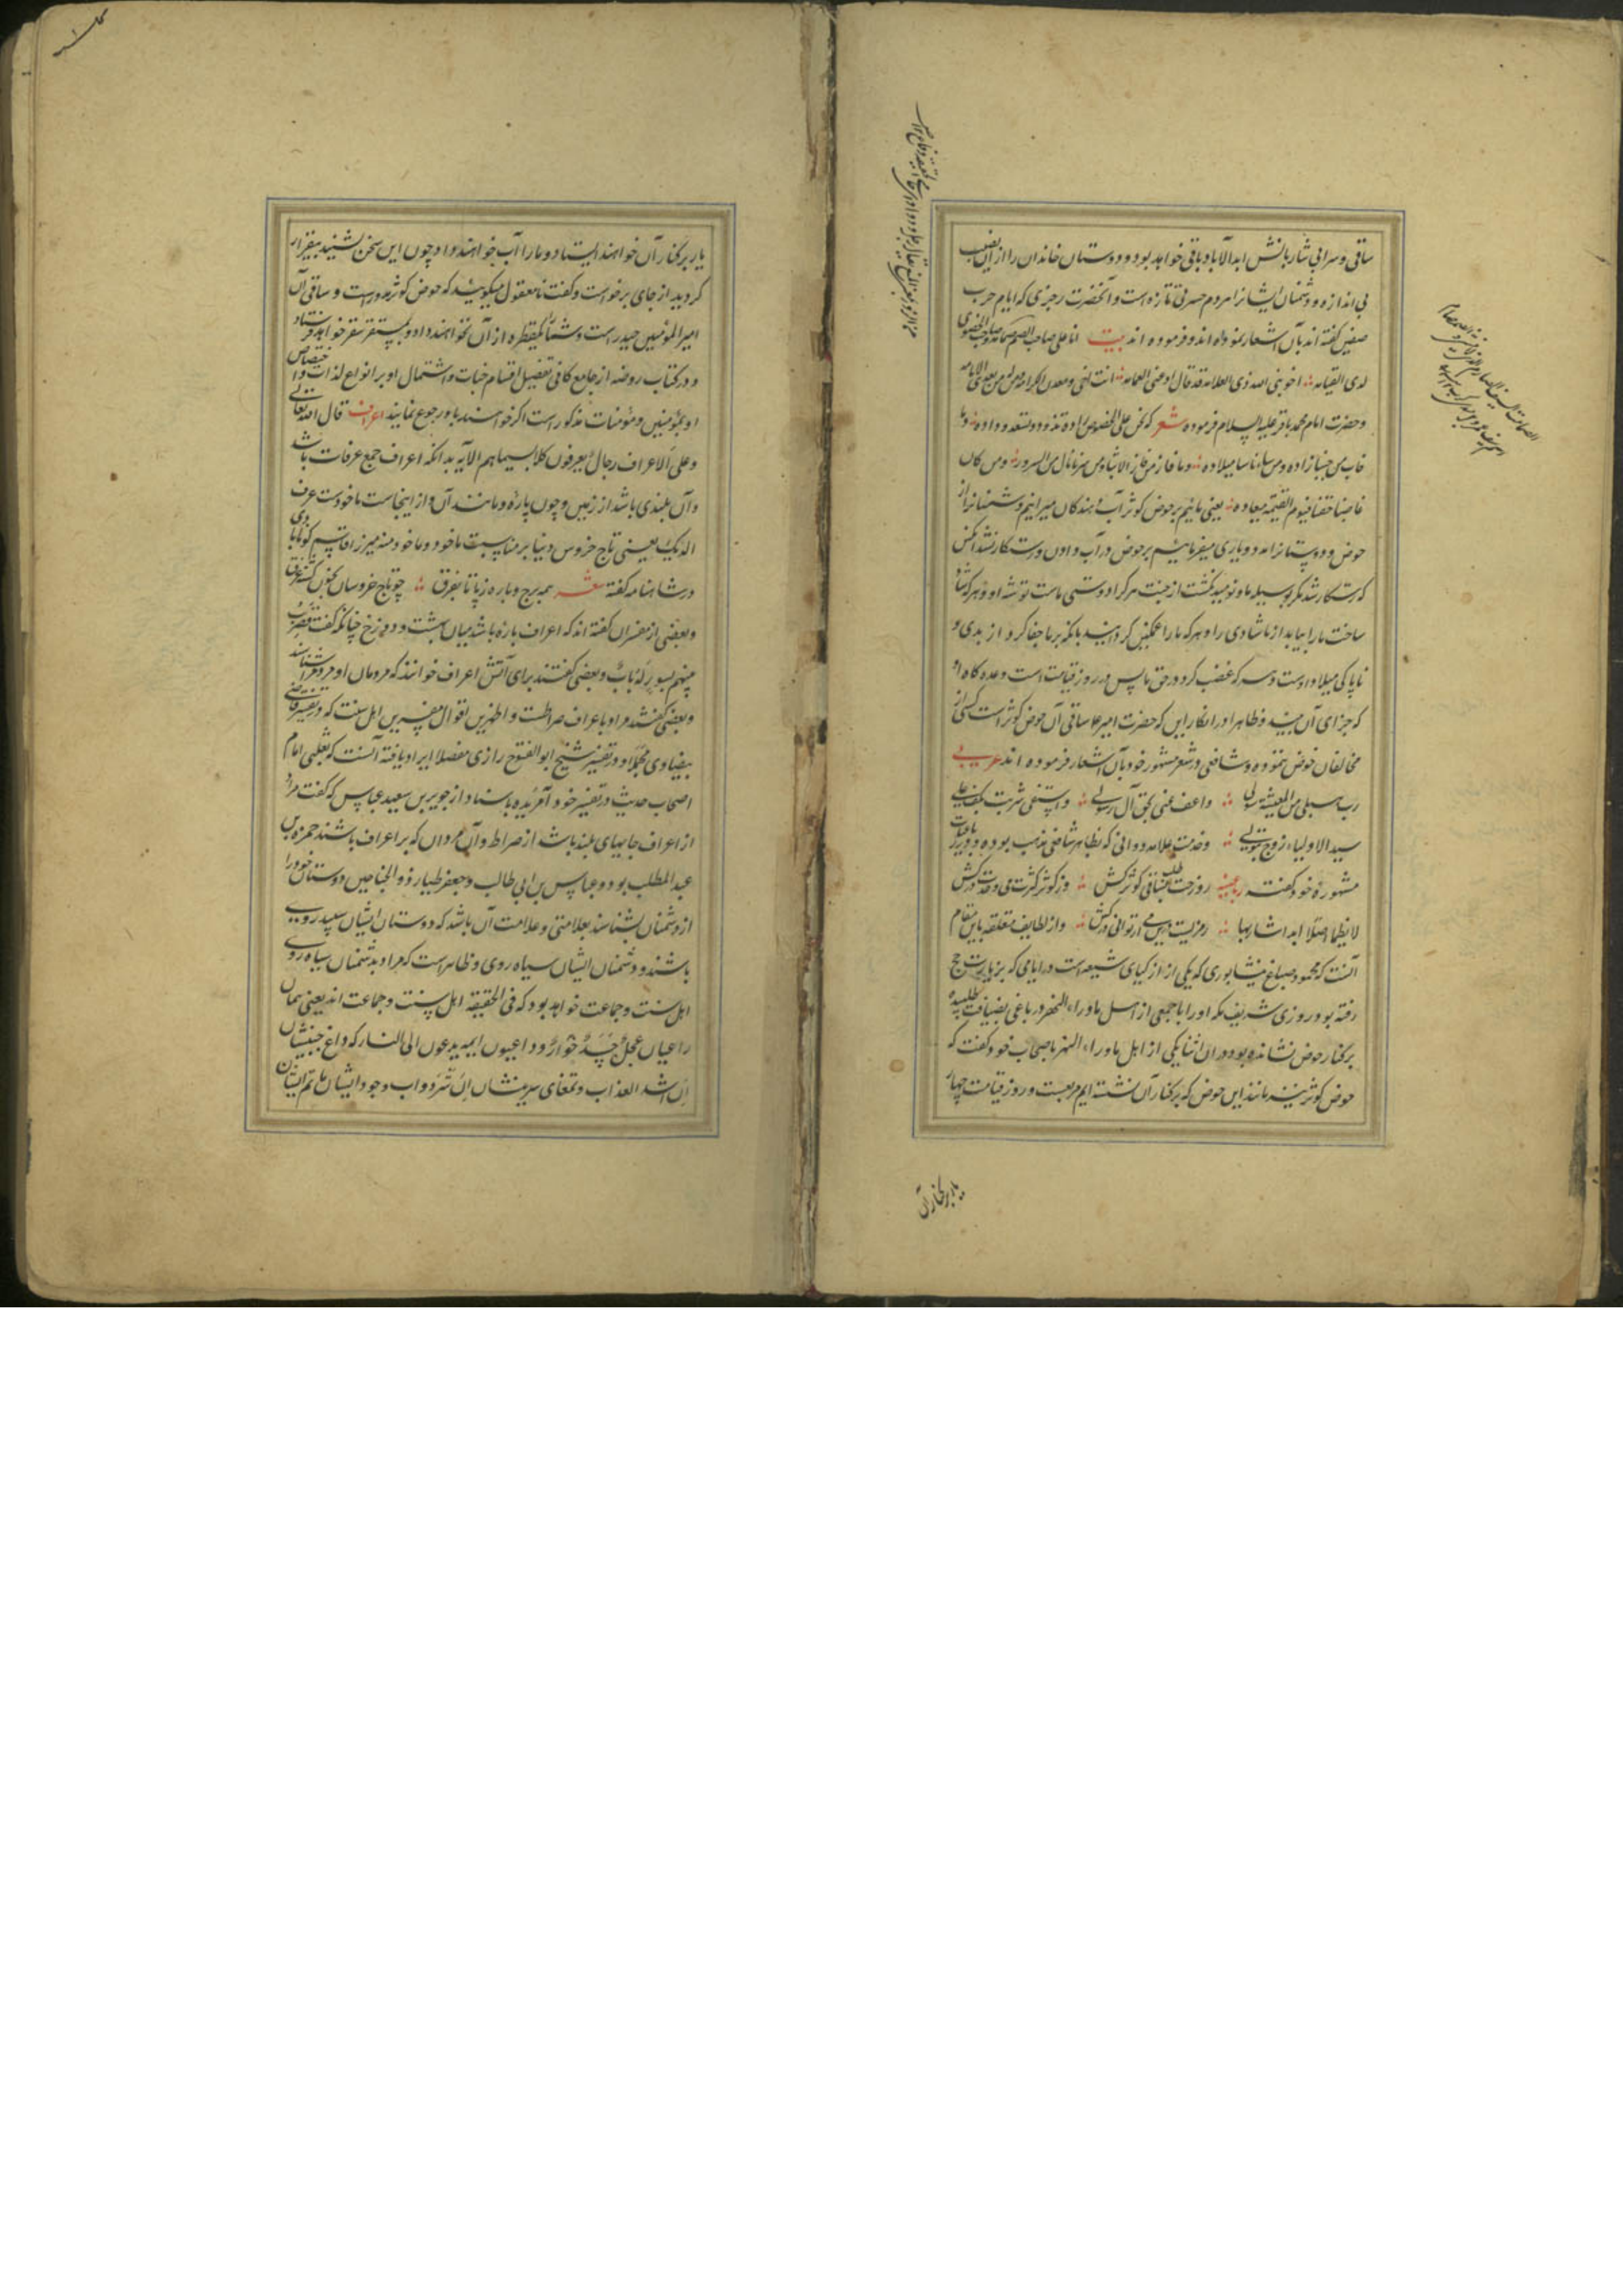 ساقی و سرابی شاربانش ابد الآباد باقی خواهد بود و دوستان خاندان را از این نصیب
بی اندازه و دشمنان ایشانرا هر دم حسرتی تازه است و آنحضرت رجزی که ایام حرب
صفین گفته اند بآن اشعار نموداه اند و فرموده اند بیت انا علی صاحب الصمصامه و صاحب الحوض
لدی القیامه اخو نبی الله ذی العلامه قد قال اذ عممنی العمامه انت اخی و معدن الکرامه و من له من بعدی الامامه
و حضرت امام محمد باقر علیه السلام فرموده شعر که نحن علی الحوض رواده نذود و نسعد وراده و ما
خاب من حبنا زاده و من ساءنا ساء میلاده و ما فاز من فاز الا بنا و من سرنا نال من السرور و من کان
غاصبنا حقنا فیوم القیمه میعاده یعنی مائیم بر حوض کوثر آب دهندگان میرانیم دشمنانرا از
حوض و دوستانرا مدد و یاری میفرمائیم بر حوض در آب دادن و رستگار نشد آنکس
که رستکار شد مکر بوسیله ما و نومید نکشت از جنت هر که را دوستی ماست توشه او و هر که شاد
ساخت ما را بیابد از ما شادی را و هر که ما را غمکین کرداند بدانکه بر ما جفا کرد از بدی و
ناپاکی میلاد اوست و هر که غضب کرد در حق ما پس در روز قیامت است وعده گاه او
که جزای آن بیند و ظاهرا در انکار این که حضرت امیر علا ساقی آن حوض کوثر است کسی از
مخالفان خوض ننموده و شافعی در شعر مشهور خود بآن اشعار فرموده اند عربی
رب سهل من المعیشة سؤلی واعف عنی بحق آل رسولی واسقنی شربت بکف علی
سید الاولیاء زوج بتولی و حضرت علامه دوانی که بظاهر شافعی مذهب بوده در رباعیات
مشهوره خود گفته رباعیه روزت طلب ساقی کوثر کش وز کوثر کثرت می وحدت درکش
لا یظما اصلا ابدا شاربها رمزیست درین می ار توانی درکش و از لطایف متعلقه باین مقام
آنست که محمود صباغ نیشابوری که یکی از ازکیای شیعه است در ایامی که بزیارت حج
رفته بود روزی شریف مکه او را با جمعی از اهل ماوراء النهر در باغی بضیافت طلبیده
بر کنار حوض نشانده بود در ان اثنا یکی از اهل ماوراء النهر باصحاب خود گفت که
حوض کوثر نیز مانند این حوض که بر کنار آن نشسته ایم مربعست و روز قیامت چهار
یار بر کنار آن
یار بر کنار آن خواهند ایستاد و ما را آب خواهند داد چون این سخن بشنید بیقرار
کردید از جای برخواست و گفت نامعقول میکوئید که حوض کوثر مدورست و ساقی آن
امیرالمؤمنین حیدر است و شما را یکقطره از آن نخواهند داد و بمستقر سقر خواهد فرستاد
و در کتاب روضه از جامع کافی تفضیل اقسام جنات و اشتمال او بر انواع لذات و اختصاص
او بمؤمنین و مؤمنات مذکور است اکر خواهند باو رجوع نمایند اعراف قال الله تعالی
و علی الاعراف رجال یعرفون کلا بسیماهم الایه بدانکه اعراف جمع عرفات باشد
و آن بلندی باشد از زمین و چون پاره و مانند آن و از اینجاست ماخوذست عرف
الدیک یعنی تاج خروس و بنا بر مناسبت ماخوذ و ماخوذ منه میرزا قاسم گونابادی
در شاهنامه گفته شعر همه برج و باره ز پا تا بفرق چو تاج خروسان بخون گشته غرق
و بعضی از مفسران کفته اند که اعراف باره باشد میان بهشت و دوزخ چنانکه گفت فضرب
بینهم بسور له باب و بعضی کفتند برای آتش اعراف خوانند که مردمان او مردم را شناسند
و بعضی گفتند مراد باعراف صراطست و اظهر این اقوال مفسرین اهل سنت که در تفسیر قاضی
بیضاوی مجملا و در تفسیر شیخ ابو الفتوح رازی مفصلا ایراد یافته آنست که ثعلبی امام
اصحاب حدیث در تفسیر خود آورده باسناد از جویبر بن سعید عباس که گفت مراد
از اعراف جایهای بلند باشد از صراط و آن مردان که بر اعراف باشند حمزه بن
عبد المطلب بود و عباس بن ابی طالب و جعفر طیار ذو الجناحین دوستان خود را
از دشمنان بشناسند بعلامتی و علامت آن باشد که دوستان ایشان سپید روی
باشند و دشمنان ایشان سیاه روی و ظاهر است که مراد بدشمنان سیاه روی
اهل سنت و جماعت خواهد بود که فی الحقیقه اهل سنت و جماعت اند یعنی همان
راعیان عجل جسد خوار و داعیون ایمه یدعون الی النار که داغ جبینشان
ان اشد العذاب و تمغای سرینشان ان شر الدواب وجود ایشان